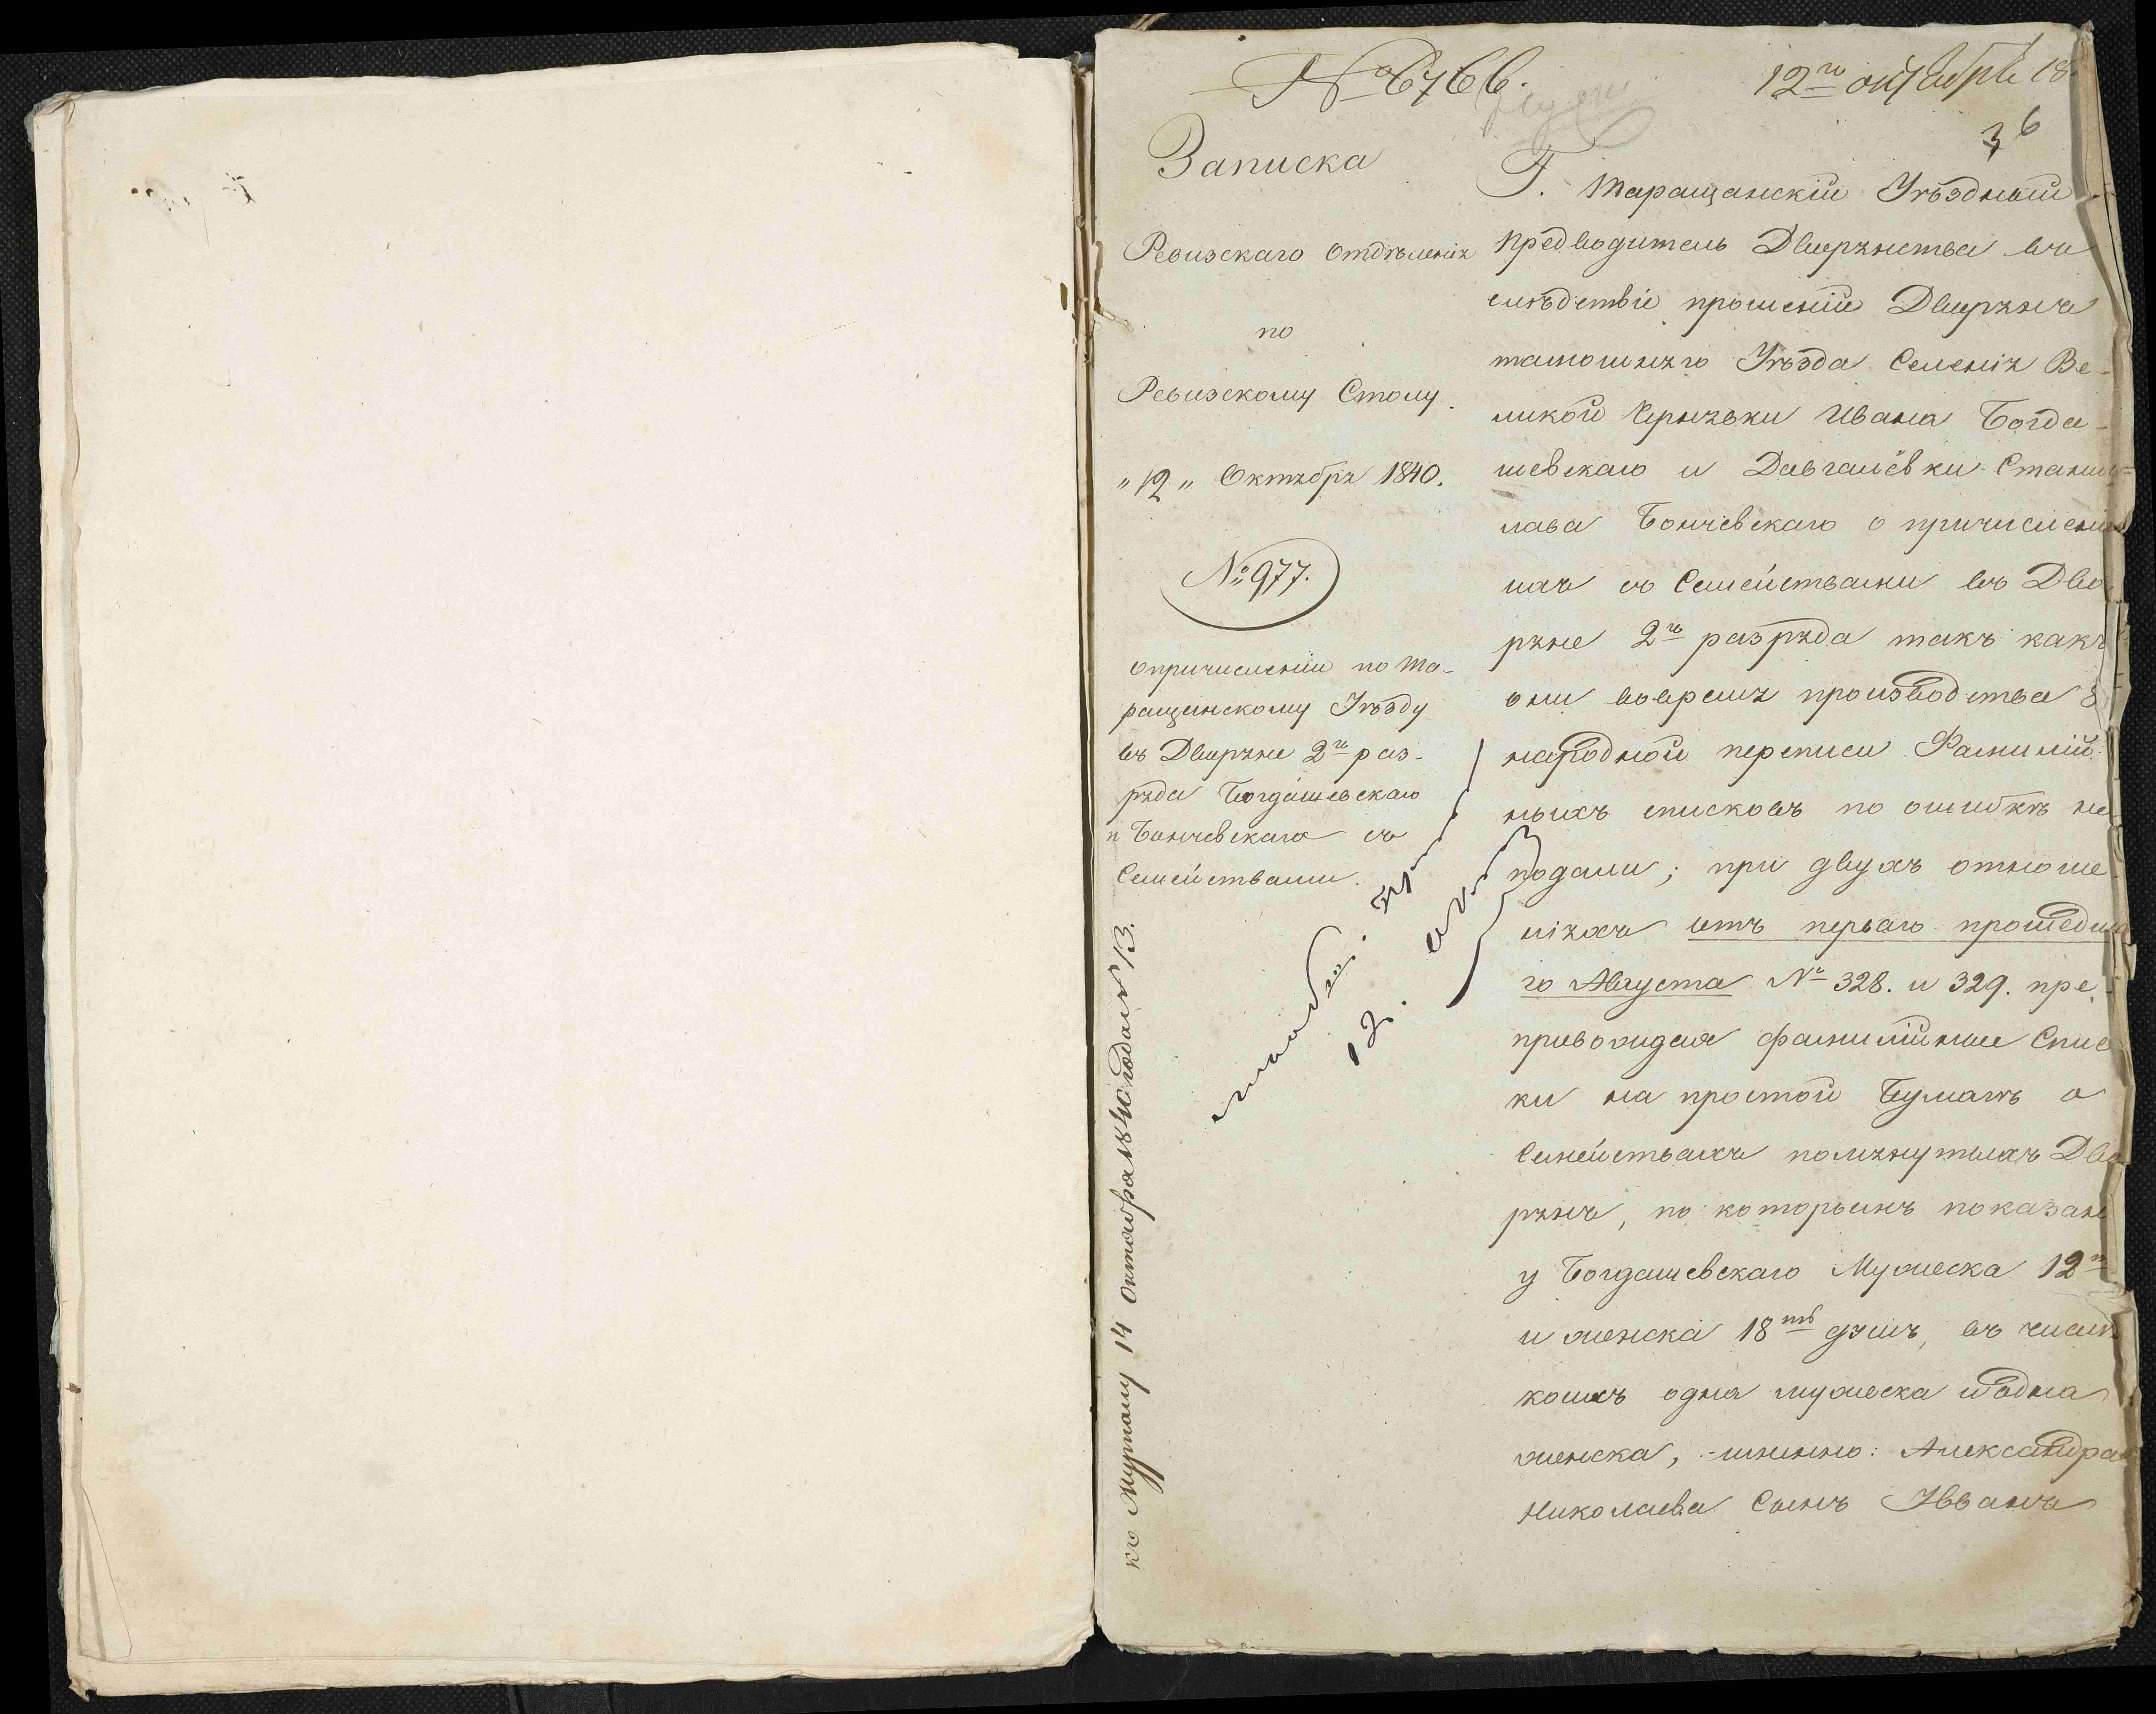 № 6766.
12го октября 18
36
Записка
Ревизскаго Отдѣленія
по
Ревизскому Столу.
„12„ Октября 1840.
№ 977.
о причисленіи по Та-
ращанскому Уѣзду
въ Дворяне 2го раз-
ряда Богдашевскаго
и Бончевскаго съ
Семействами.
къ Журналу 14 октября 1840 года № 13.
Г. Таращанскій Уѣздный
Предводитель Дворянства въ
слѣдствіе прошеній Дворянъ
тамошняго Уѣзда Селенія Ве-
ликой Чернявки Ивана Богда-
шевскаго и Давгалёвки Станис-
лава Бончевскаго о причислені
ихъ съ Семействами въ Дво
ряне 2го разряда такъ какъ
они вовремя производства 8
народной переписи Фамилій
ныхъ списковъ по ошибкѣ не
подали; при двухъ отноше
ніяхъ отъ перваго прошедша
го Августа № 328. и 329. пре
приводилъ фамилійные Спис
ки на простой Бумагѣ о
Семействахъ помянутыхъ Дво
рянъ, по которымъ показан
у Богдашевскаго Мужеска 12ть
и женска 18ть душъ, въ числѣ
коихъ одна мужеска и одна
женска, именно: Александра
Николаева Сынъ Иванъ